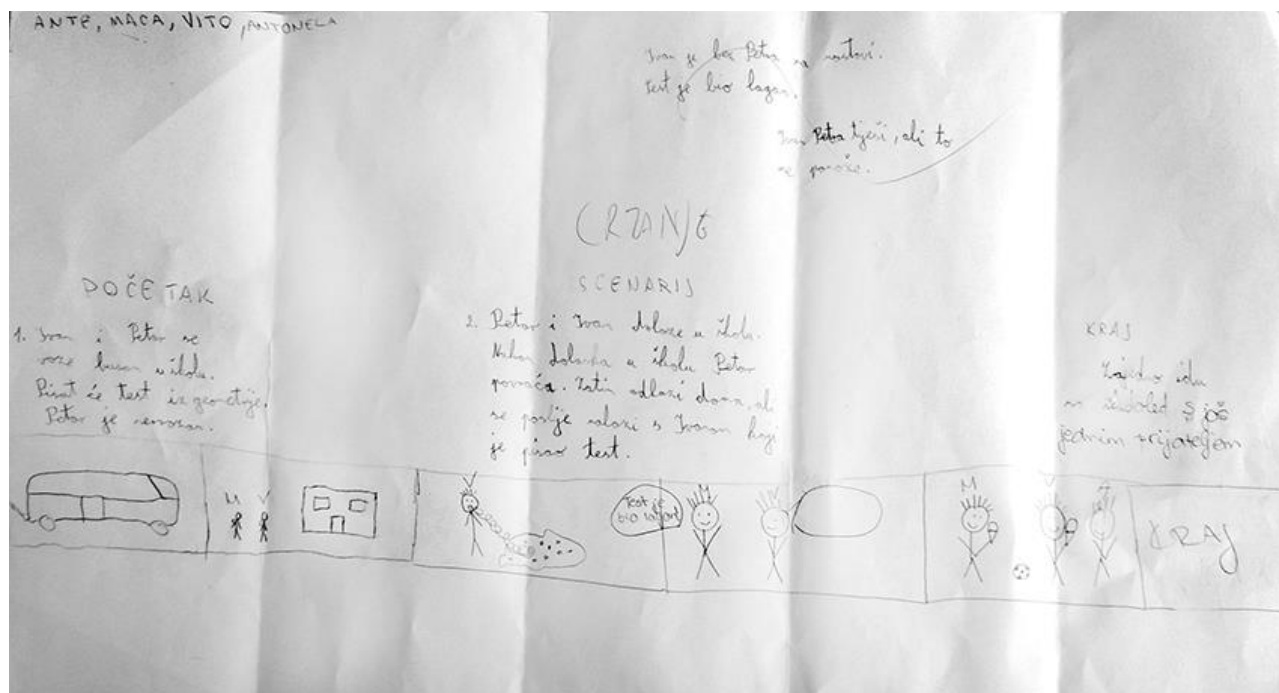 ANTE, MACA, VITO, ANTONELA
Ivan je bez Petra na nastavi.
Test je bio lagan.
Ivan Petra tješi, ali to
ne pomaže.
CRTANJE
SCENARIJ
POČETAK
1. Ivan i Petar se
voze busom u školu.
Pisat će test iz geometrije.
Petar je nervozan.
2. Petar i Ivan dolaze u školu.
Nakon dolaska u školu Petar
povraća. Zatim odlazi doma, ali
se poslje nalazi s Ivanom koji
je pisao test.
KRAJ
Zajedno idu
na sladoled s još
jednim prijateljem
M V
V
Test je
bio
M
M V A
KRAJ